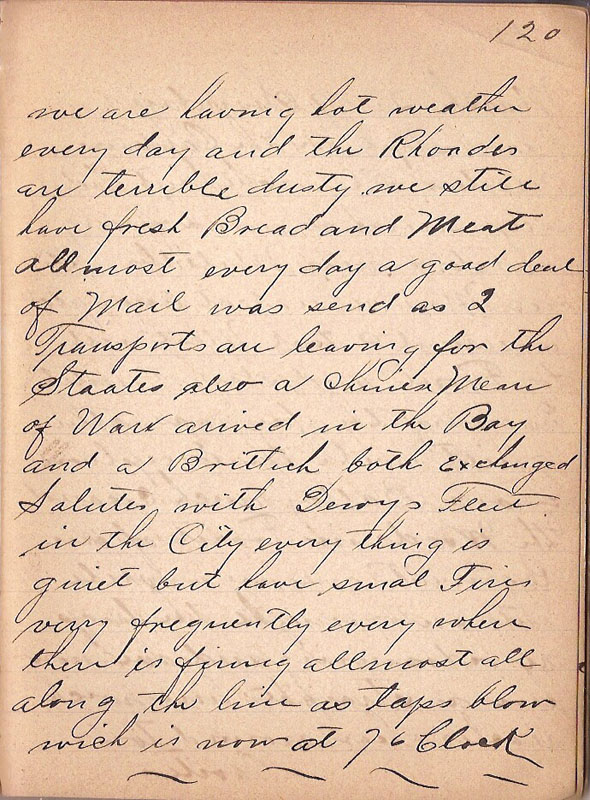 120
we are havnig hot weather
every day and the Rhoades
are terrible dusty we still
have fresh Bread and Meat
allmost every day a good deal
of Mail was send as 2
Transports are leaving for the
Staates also a Chines Mean
of Warr arived in the Bay
and a Brittich both Exchanged
Salutes with Dewys Fleet
in the City every thing is
quiet but have smal Fires
verry frequently every where
there is firing allmost all
along the line as taps blow
wich is now at 7 o Clock